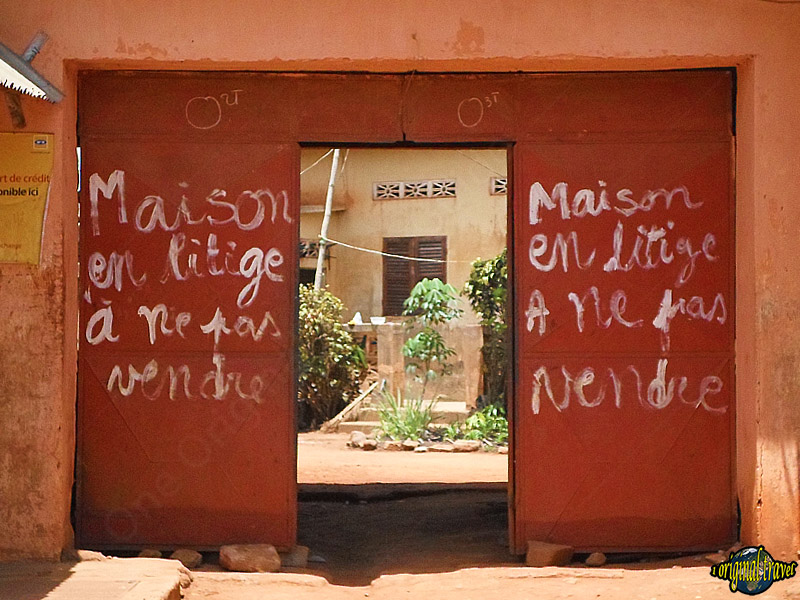 O 2T
O 3T
Maison
en litige
à ne pas
vendre
Maison
en litige
A ne pas
vendre
rt de crédit
onible ici
charge
1 original travel